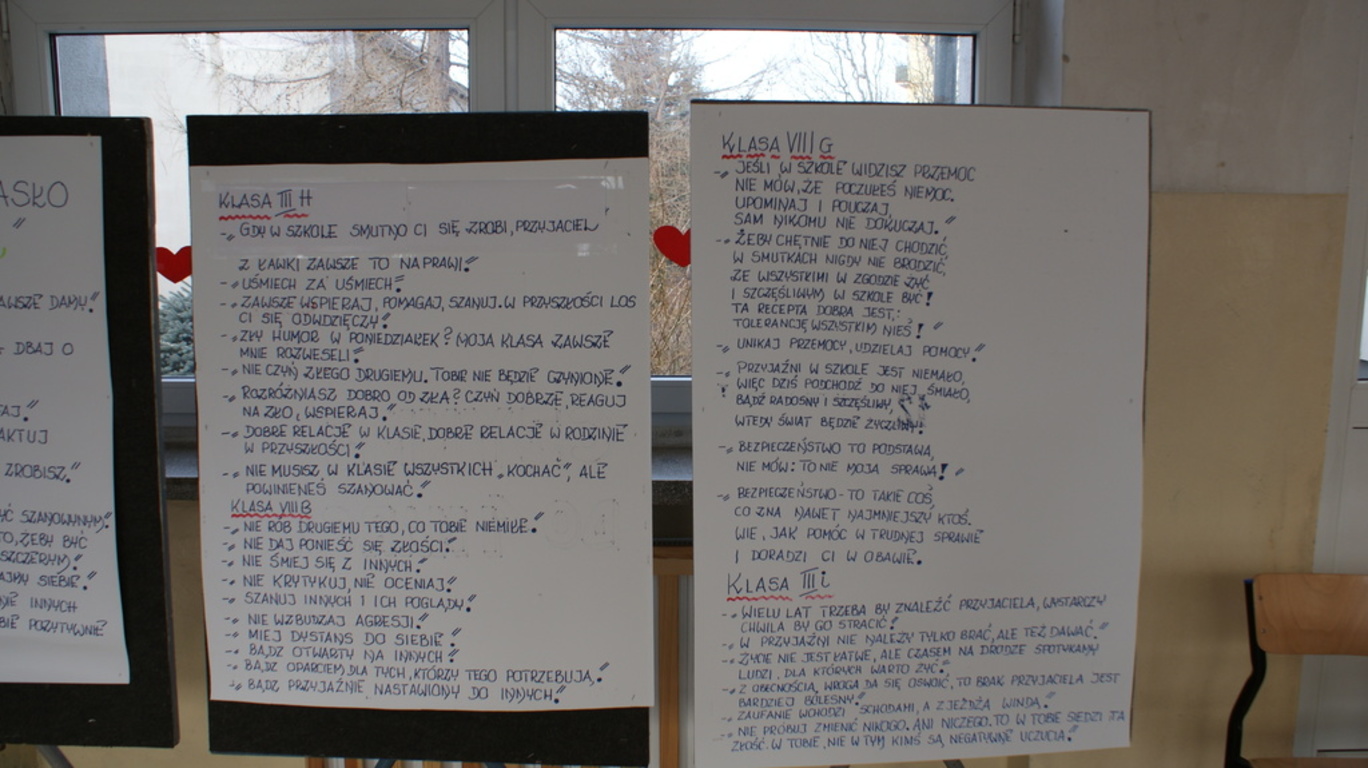 ASŁO
"
AWSZE DAMY."
DBAJ O
TAJ."
AKTUJ
ZROBISZ."
YĆ SZANOWANYM."
TO, ŻEBY BYĆ
SZCZERYM."
AJMY SIEBIE."
INNYCH
BIE POZYTYWNIE
KLASA III H
-„ GDY W SZKOLE SMUTNO CI SIĘ ZROBI, PRZYJACIEL
Z ŁAWKI ZAWSZE TO NAPRAWI."
-„ UŚMIECH ZA UŚMIECH."
-„ ZAWSZE WSPIERAJ, POMAGAJ, SZANUJ. W PRZYSZŁOŚCI LOS
CI SIĘ ODWDZIĘCZY."
-„ ZŁY HUMOR W PONIEDZIAŁEK? MOJA KLASA ZAWSZE
MNIE ROZWESELI."
-„ NIE CZYŃ ZŁEGO DRUGIEMU. TOBIE NIE BĘDZIE CZYNIONE."
-„ ROZRÓŻNIASZ DOBRO OD ZŁA? CZYŃ DOBRZE, REAGUJ
NA ZŁO, WSPIERAJ."
-„ DOBRE RELACJE W KLASIE, DOBRE RELACJE W RODZINIE
W PRZYSZŁOŚCI."
-„ NIE MUSISZ W KLASIE WSZYSTKICH „KOCHAĆ", ALE
POWINIENEŚ SZANOWAĆ."
KLASA VIII B
-„ NIE RÓB DRUGIEMU TEGO, CO TOBIE NIEMIŁE."
-„ NIE DAJ PONIEŚĆ SIĘ ZŁOŚCI."
-„ NIE ŚMIEJ SIĘ Z INNYCH."
-„ NIE KRYTYKUJ, NIE OCENIAJ."
-„ SZANUJ INNYCH I ICH POGLĄDY."
-„ NIE WZBUDZAJ AGRESJI."
-„ MIEJ DYSTANS DO SIEBIE."
-„ BĄDŹ OTWARTY NA INNYCH."
-„ BĄDŹ OPARCIEM DLA TYCH, KTÓRZY TEGO POTRZEBUJĄ."
-„ BĄDŹ PRZYJAŹNIE NASTAWIONY DO INNYCH."
KLASA VIII G
-„ JEŚLI W SZKOLE WIDZISZ PRZEMOC
NIE MÓW, ŻE POCZUŁEŚ NIEMOC.
UPOMINAJ I POUCZAJ
SAM NIKOMU NIE DOKUCZAJ."
-„ ŻEBY CHĘTNIE DO NIEJ CHODZIĆ,
W SMUTKACH NIGDY NIE BRODZIĆ,
ZE WSZYSTKIMI W ZGODZIE ŻYĆ
I SZCZĘŚLIWYM W SZKOLE BYĆ!
TA RECEPTA DOBRA JEST:
TOLERANCJĘ WSZYSTKIM NIEŚ!"
-„ UNIKAJ PRZEMOCY, UDZIELAJ POMOCY."
-„ PRZYJAŹNI W SZKOLE JEST NIEMAŁO,
WIĘC DZIŚ PODCHODŹ DO NIEJ ŚMIAŁO,
BĄDŹ RADOSNY I SZCZĘŚLIWY,
WTEDY ŚWIAT BĘDZIE ŻYCZLIWY!"
-„ BEZPIECZEŃSTWO TO PODSTAWA,
NIE MÓW: TO NIE MOJA SPRAWA!"
-„ BEZPIECZEŃSTWO - TO TAKIE COŚ,
CO ZNA NAWET NAJMNIEJSZY KTOŚ.
WIE, JAK POMÓC W TRUDNEJ SPRAWIE
I DORADZI CI W OBAWIE."
KLASA III i
-„ WIELU LAT TRZEBA BY ZNALEŹĆ PRZYJACIELA, WYSTARCZY
CHWILA BY GO STRACIĆ."
-„ W PRZYJAŹNI NIE NALEŻY TYLKO BRAĆ, ALE TEŻ DAWAĆ."
-„ ŻYCIE NIE JEST ŁATWE, ALE CZASEM NA DRODZE SPOTYKAMY
LUDZI, DLA KTÓRYCH WARTO ŻYĆ."
-„ Z OBECNOŚCIĄ WROGA DA SIĘ OSWOIĆ, TO BRAK PRZYJACIELA JEST
BARDZIEJ BOLESNY."
-„ ZAUFANIE WCHODZI SCHODAMI, A ZJEŻDŻA WINDĄ."
-„ NIE PRÓBUJ ZMIENIĆ NIKOGO. ANI NICZEGO. TO W TOBIE SIEDZI TA
ZŁOŚĆ. W TOBIE, NIE W TYM KIMŚ SĄ NEGATYWNE UCZUCIA."